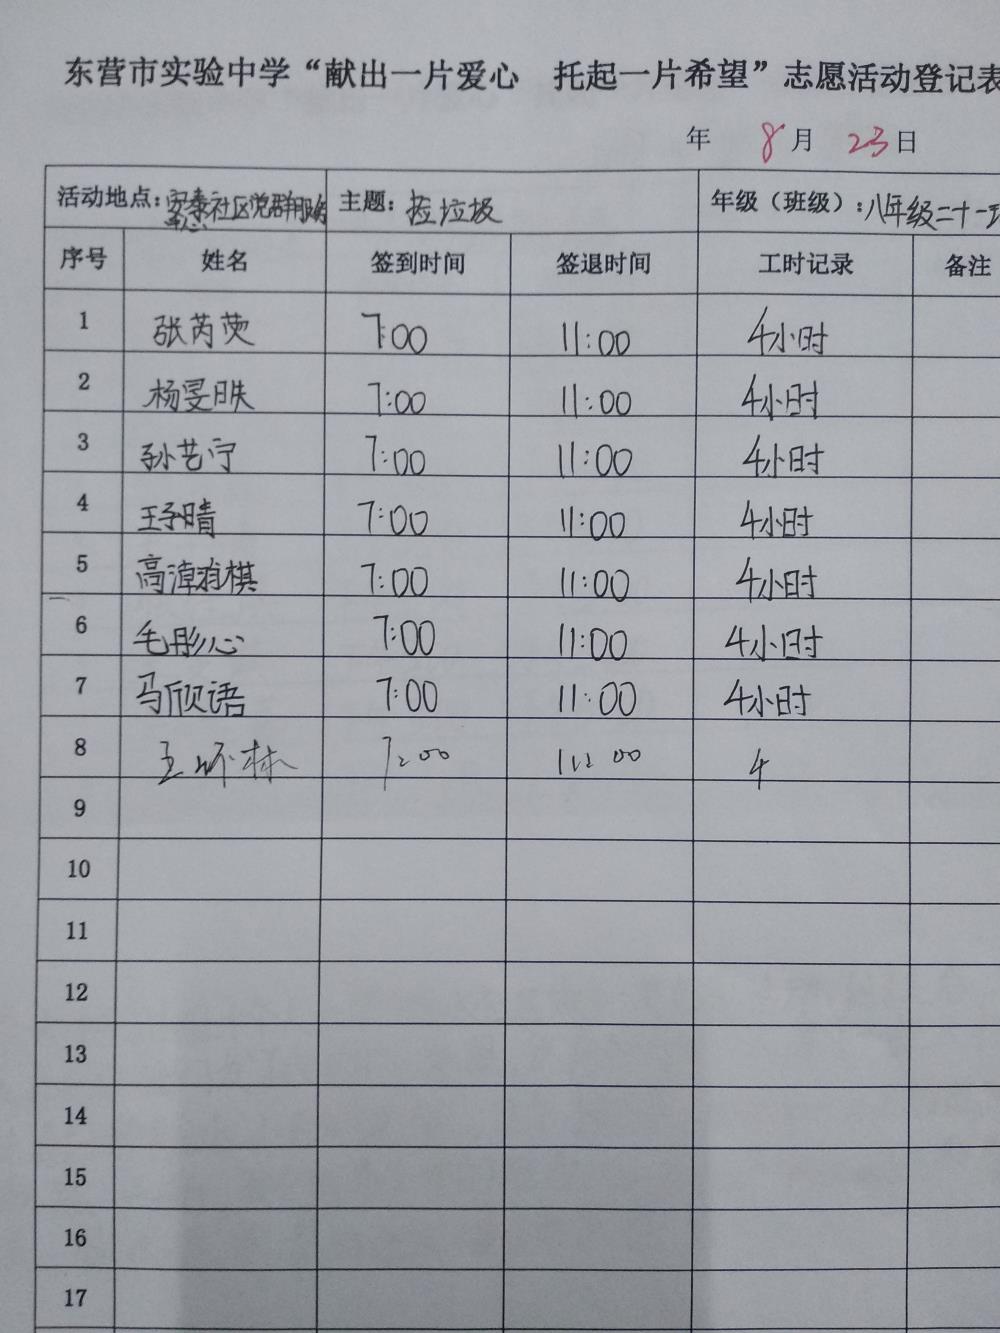 东营市实验中学“献出一片爱心 托起一片希望”志愿活动登记表
年 8月 23日
活动地点：安泰社区党群服务中心 主题：捡垃圾 年级（班级）：八年级二十一班
序号 姓名 签到时间 签退时间 工时记录 备注
1 张芮荧 7:00 11:00 4小时
2 杨旻昳 7:00 11:00 4小时
3 孙艺宁 7:00 11:00 4小时
4 王子晴 7:00 11:00 4小时
5 高漳雅棋 7:00 11:00 4小时
6 毛彤心 7:00 11:00 4小时
7 马欣语 7:00 11:00 4小时
8 王 林 7:00 11:00 4
9
10
11
12
13
14
15
16
17